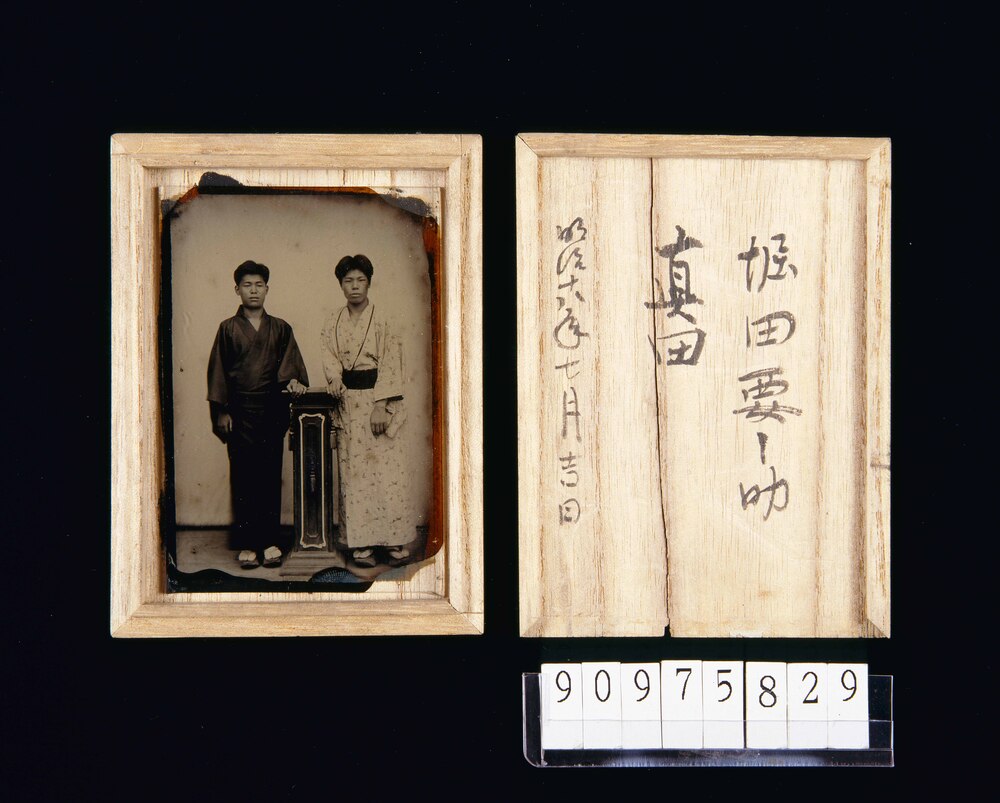 堀田要之助
真田
明治十六年七月吉日
90975829